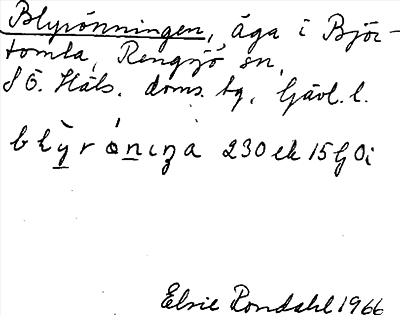 Blyrönningen, äga i Björ-
tomta, Rengsjö sn,
S Ö. Häls. doms. tg, Gävl. l.
230 ek 15 G Oi
Elsie Rondahl 1966